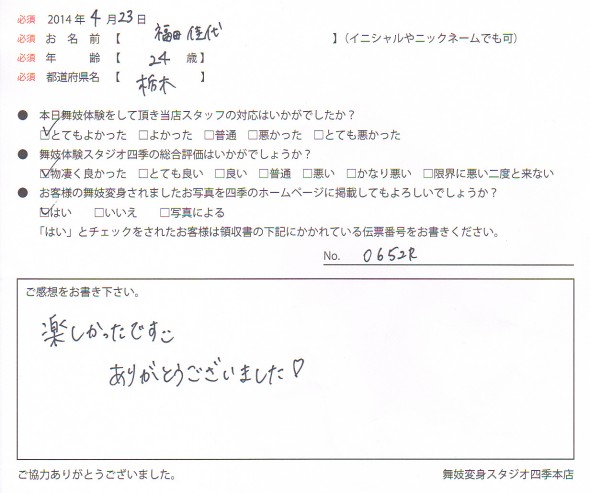 必須 2014年 4 月 23 日
必須 お名前【 福田佳代 】(イニシャルやニックネームでも可)
必須 年齢【 24 歳】
必須 都道府県名【 栃木 】
● 本日舞妓体験をして頂き当店スタッフの対応はいかがでしたか?
☑とてもよかった □よかった □普通 □悪かった □とても悪かった
● 舞妓体験スタジオ四季の総合評価はいかがでしょうか?
☑物凄く良かった □とても良い □良い □普通 □悪い □かなり悪い □限界に悪い二度と来ない
● お客様の舞妓変身されましたお写真を四季のホームページに掲載してもよろしいでしょうか?
☑はい □いいえ □写真による
「はい」とチェックをされたお客様は領収書の下記にかかれている伝票番号をお書きください。
No. 0652R
ご感想をお書き下さい。
楽しかったです
ありがとうございました♡
ご協力ありがとうございました。 舞妓変身スタジオ四季本店